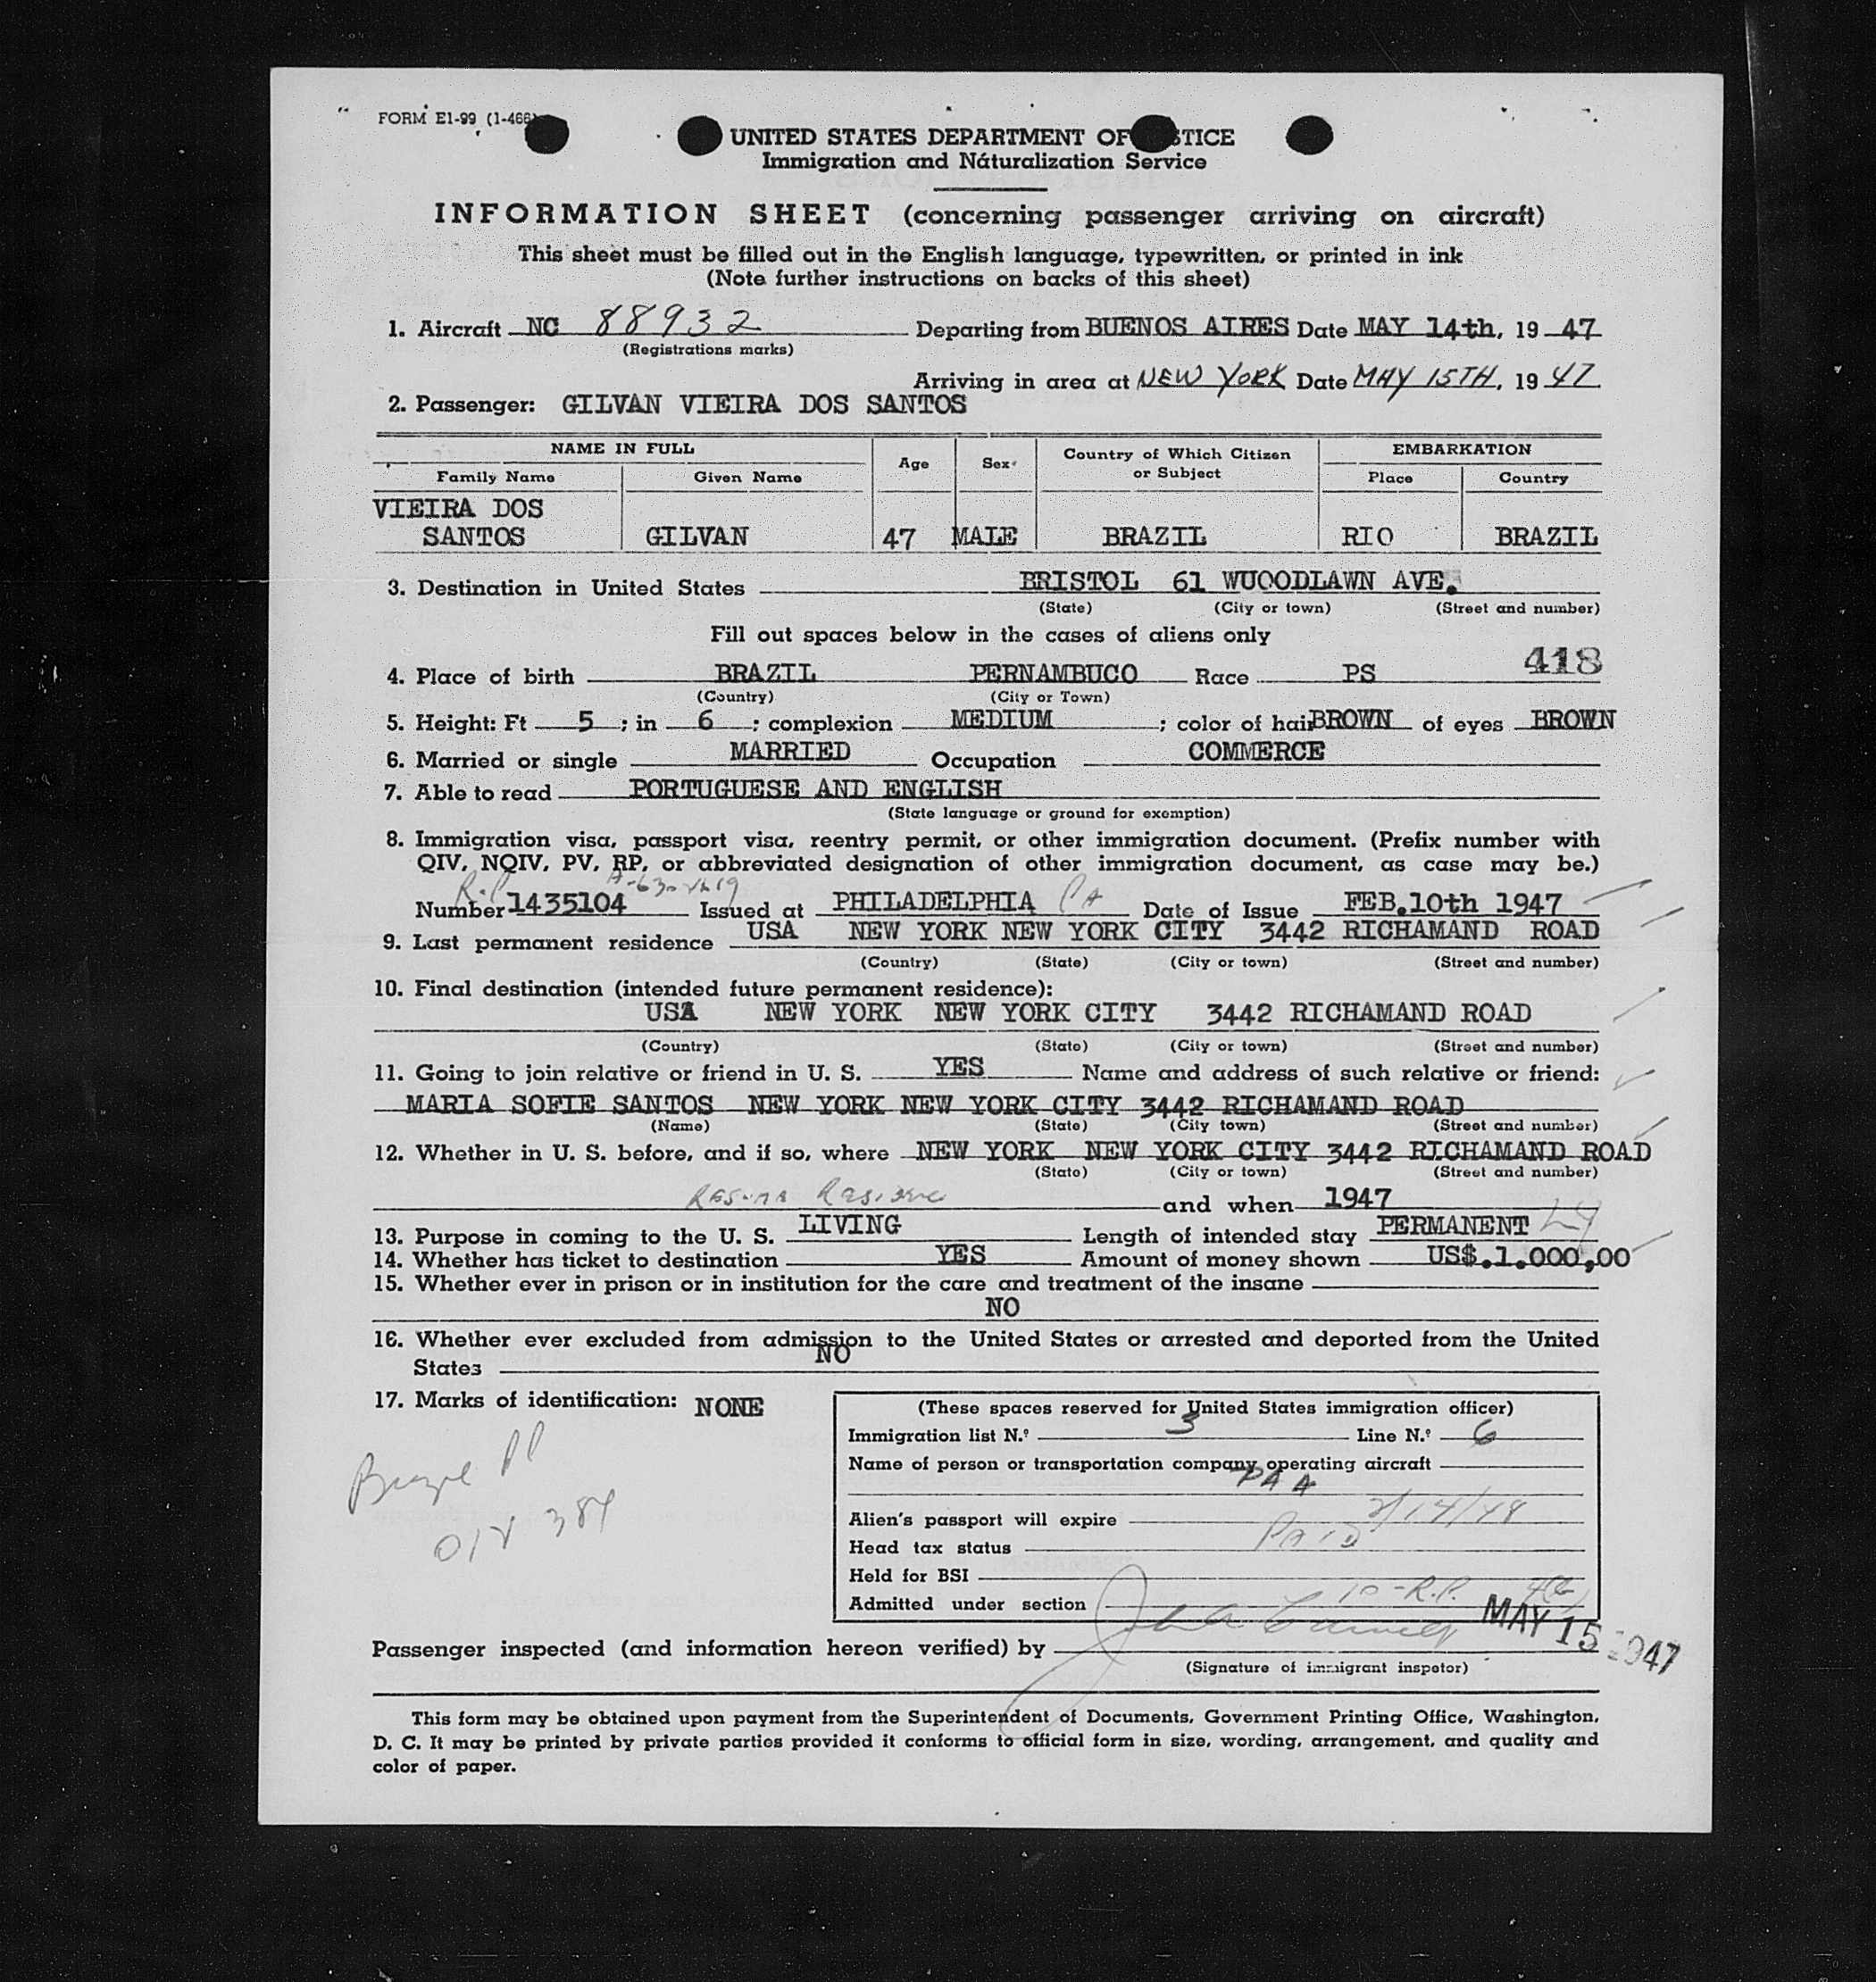 FORM E1-99 (1-466)
UNITED STATES DEPARTMENT OF STICE
Immigration and Náturalization Service
INFORMATION SHEET (concerning passenger arriving on aircraft)
This sheet must be filled out in the English language, typewritten, or printed in ink
(Note further instructions on backs of this sheet)
1. Aircraft NC 88932 Departing from BUENOS AIRES Date MAY 14th, 19 47
(Registrations marks)
Arriving in area at NEW YORK Date MAY 15TH, 19 47
2. Passenger: GILVAN VIEIRA DOS SANTOS
NAME IN FULL Age Sex Country of Which Citizen or Subject EMBARKATION
Family Name Given Name Place Country
VIEIRA DOS
SANTOS GILVAN 47 MALE BRAZIL RIO BRAZIL
3. Destination in United States BRISTOL 61 WUOODLAWN AVE.
(State) (City or town) (Street and number)
Fill out spaces below in the cases of aliens only
418
4. Place of birth BRAZIL PERNAMBUCO Race PS
(Country) (City or Town)
5. Height: Ft 5 ; in 6 ; complexion MEDIUM ; color of hair BROWN of eyes BROWN
6. Married or single MARRIED Occupation COMMERCE
7. Able to read PORTUGUESE AND ENGLISH
(State language or ground for exemption)
8. Immigration visa, passport visa, reentry permit, or other immigration document. (Prefix number with
QIV, NQIV, PV, RP, or abbreviated designation of other immigration document, as case may be.)
R.P.
Number 1435104 Issued at PHILADELPHIA PA Date of Issue FEB.10th 1947
9. Last permanent residence USA NEW YORK NEW YORK CITY 3442 RICHAMAND ROAD
(Country) (State) (City or town) (Street and number)
10. Final destination (intended future permanent residence):
USA NEW YORK NEW YORK CITY 3442 RICHAMAND ROAD
(Country) (State) (City or town) (Street and number)
11. Going to join relative or friend in U. S. YES Name and address of such relative or friend:
MARIA SOFIE SANTOS NEW YORK NEW YORK CITY 3442 RICHAMAND ROAD
(Name) (State) (City town) (Street and number)
12. Whether in U. S. before, and if so, where NEW YORK NEW YORK CITY 3442 RICHAMAND ROAD
(State) (City or town) (Street and number)
and when 1947
13. Purpose in coming to the U. S. LIVING Length of intended stay PERMANENT
14. Whether has ticket to destination YES Amount of money shown US$.1.000,00
15. Whether ever in prison or in institution for the care and treatment of the insane
NO
16. Whether ever excluded from admission to the United States or arrested and deported from the United
States NO
17. Marks of identification: NONE
(These spaces reserved for United States immigration officer)
Immigration list N.º 3 Line N.º 6
Name of person or transportation company operating aircraft
PAA
Alien's passport will expire 2/14/48
Head tax status PAID
Held for BSI
Admitted under section 10-R.P.
MAY 15 1947
Passenger inspected (and information hereon verified) by
(Signature of immigrant inspetor)
This form may be obtained upon payment from the Superintendent of Documents, Government Printing Office, Washington,
D. C. It may be printed by private parties provided it conforms to official form in size, wording, arrangement, and quality and
color of paper.